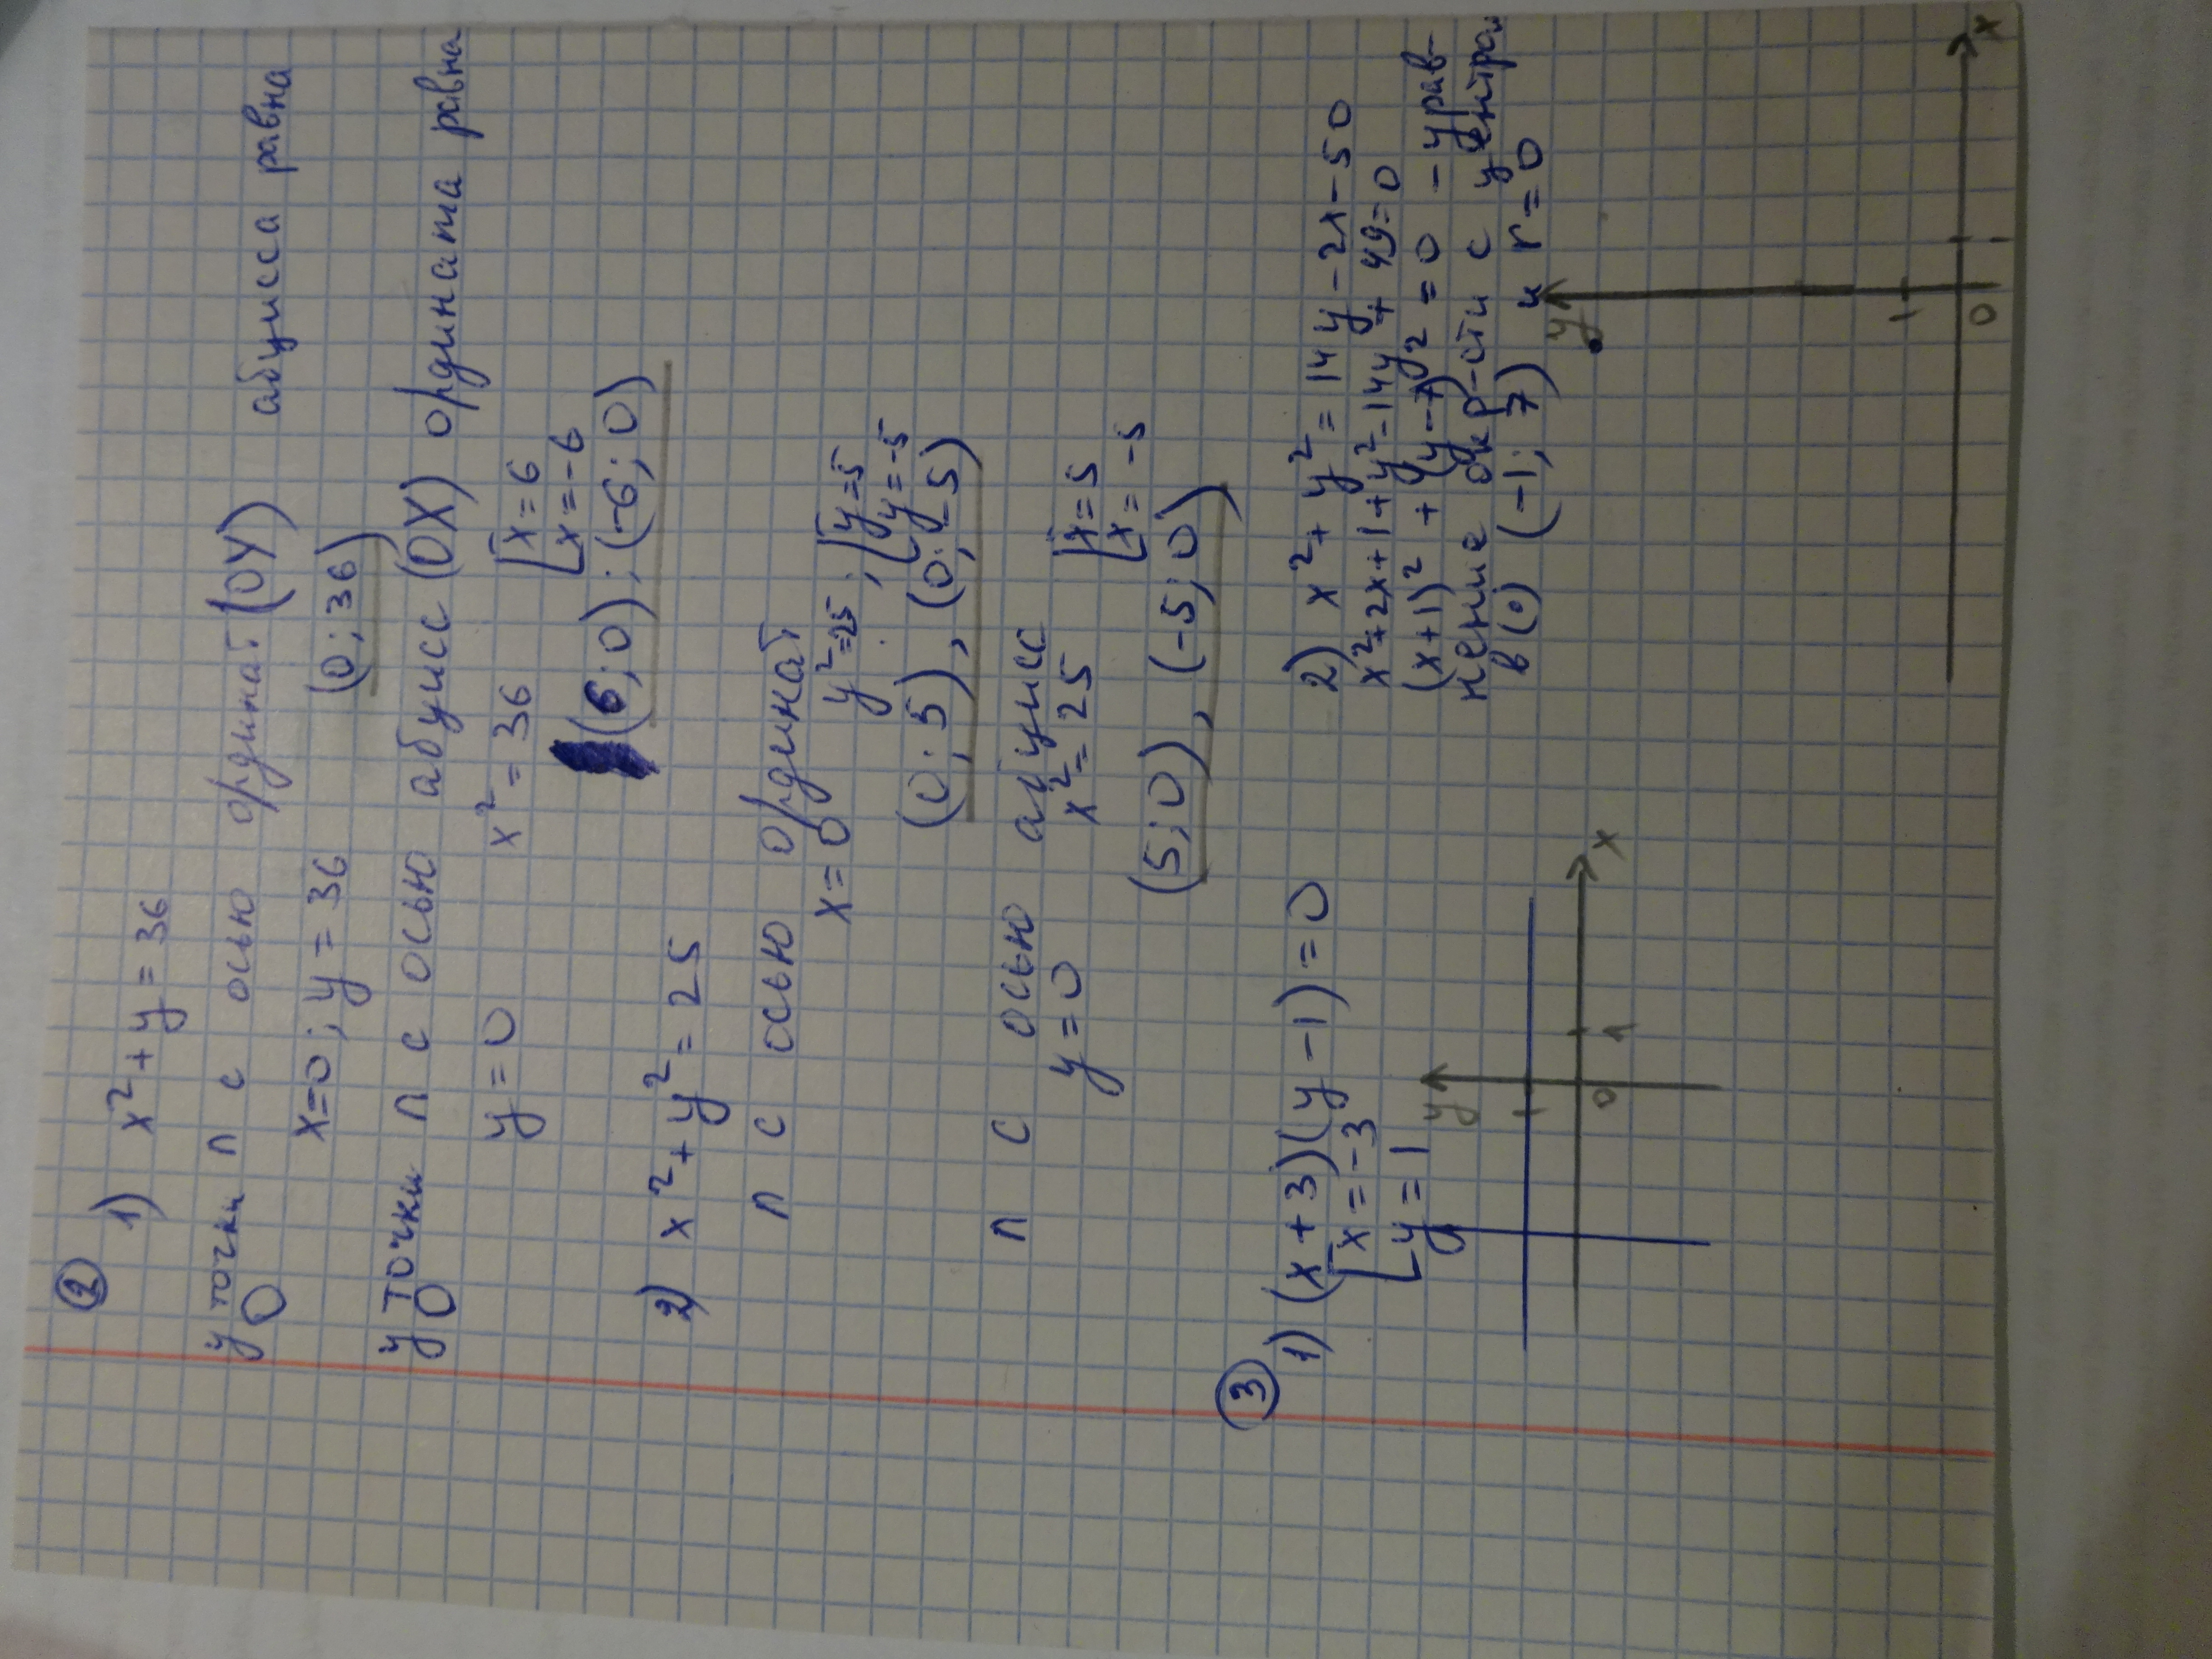 ②
1) x² + y = 36
У точки п с осью ординат (OY) абцисса равна
0
x=0; y = 36 (0; 36)
У точки п с осью абцисс (OX) ордината равна
0
y = 0 x² = 36 [x = 6
x = -6
(6; 0); (-6; 0)
2) x² + y² = 25
п с осью ординат
x = 0 y² = 25; [y = 5
y = -5
(0; 5), (0; -5)
п с осью
y = 0 x² = 25 [x = 5
x = -5
(5; 0), (-5; 0)
③
1) (x + 3)(y - 1) = 0
[x = -3
y = 1
y
1
0 1 x
2) x² + y² = 14y - 2x - 50
x² + 2x + 1 + y² - 14y + 49 = 0
(x + 1)² + (y - 7)² = 0 - урав-
нение окр-сти с центром
в (·) (-1; 7) и r = 0
y
1
0 1 x